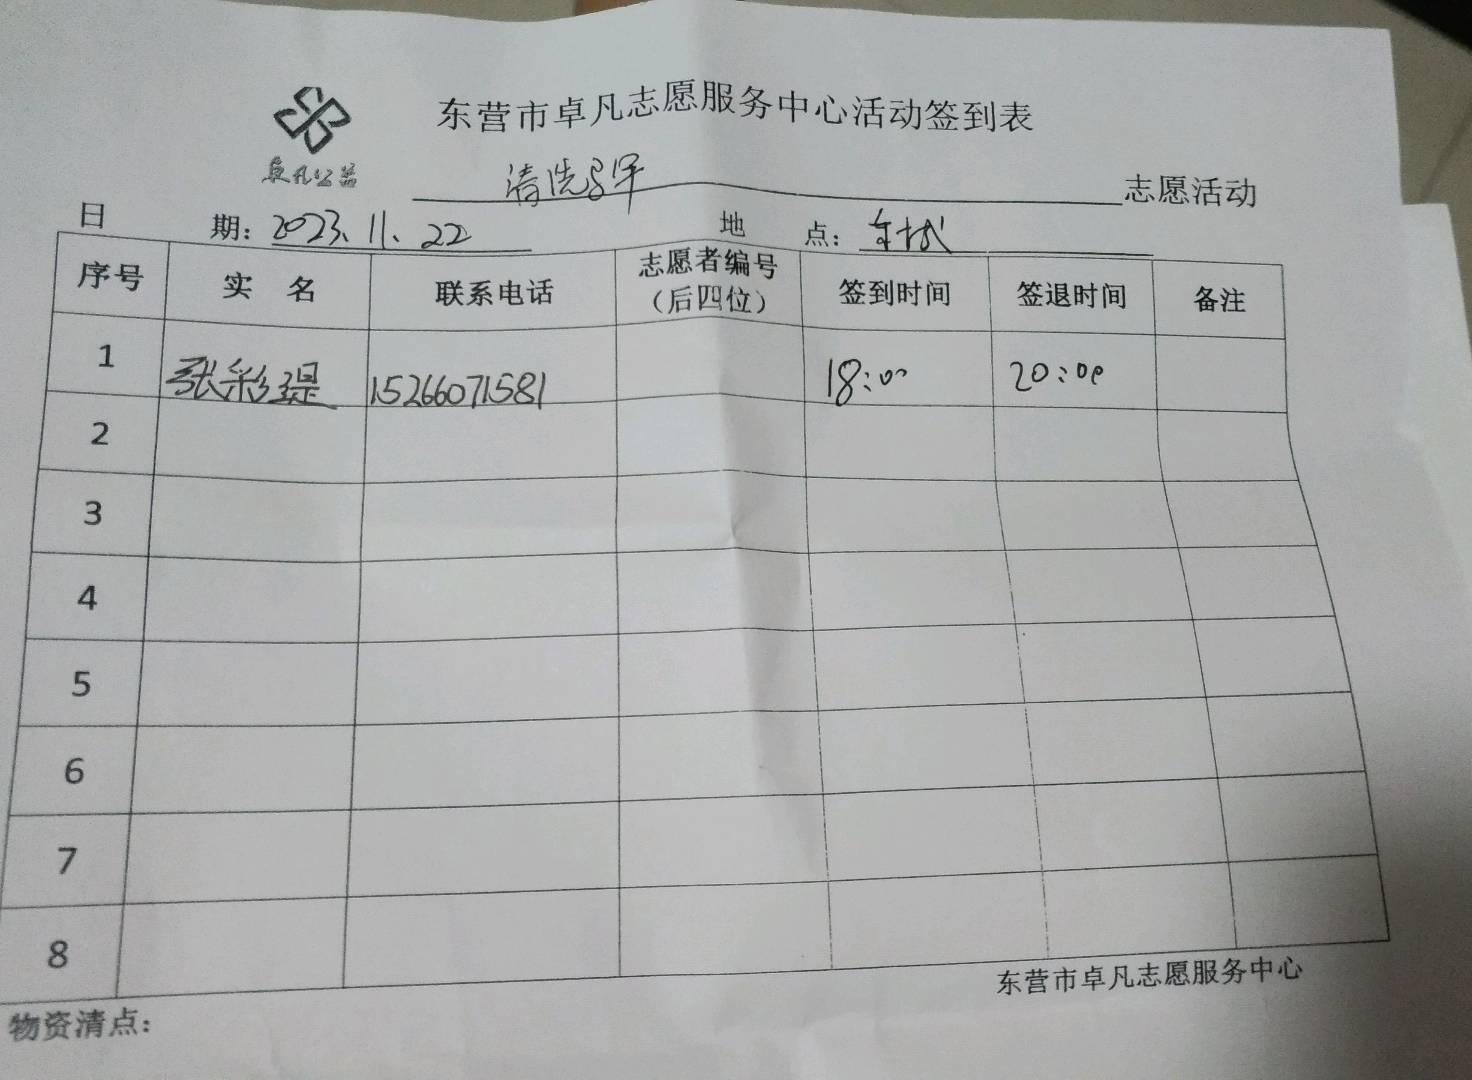 东营市卓凡志愿服务中心活动签到表
卓凡公益
清洗 志愿活动
日 期: 2023.11.22 地 点: 车城
序号 实 名 联系电话 志愿者编号（后四位） 签到时间 签退时间 备注
1 张彩缇 15266071581 18:00 20:00
2
3
4
5
6
7
8
东营市卓凡志愿服务中心
物资清点: